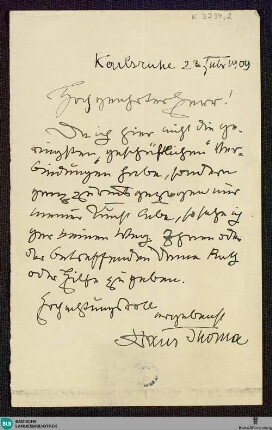 K 3234,2
Karlsruhe 23 Febr 1909
Hochgeehrter Herr!
Da ich hier nicht die ge-
ringsten „geschäftlichen" Ver-
bindungen habe, sondern
ganz zurückgezogen nur
meiner Kunst lebe, so sehe ich
gar keinen Weg Ihnen oder
der betreffenden Dame Rath
oder Hilfe zu geben.
Hochachtungsvoll
ergebenst
Hans Thoma
BLB BADISCHE
LANDESBIBLIOTHEK